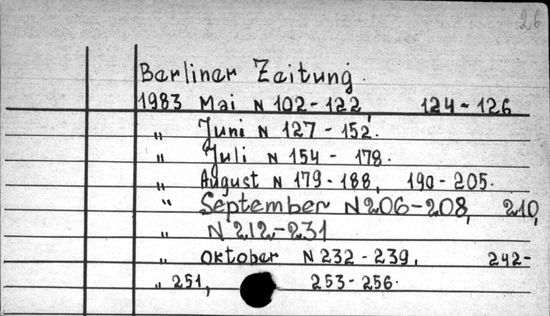 26
Berliner Zeitung.
1983 Mai N 102-122, 124-126
„ Juni N 127-152.
„ Juli N 154-178.
„ August N 179-188, 190-205.
„ September N 206-208, 210,
„ N 212-231
„ Oktober N 232-239, 242-
„ 251, 253-256.